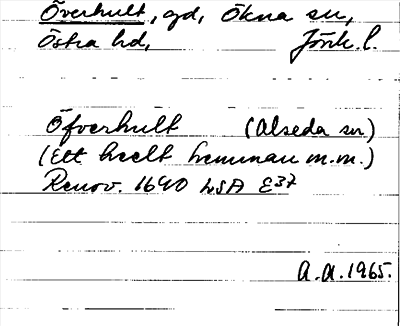 Överhult, gd, Ökna sn,
Östra hd, Jönk. l.
Öfverhult (Alseda sn)
(Ett heelt hemman m.m.)
Renov. 1690 LSA E37
A.A. 1965.